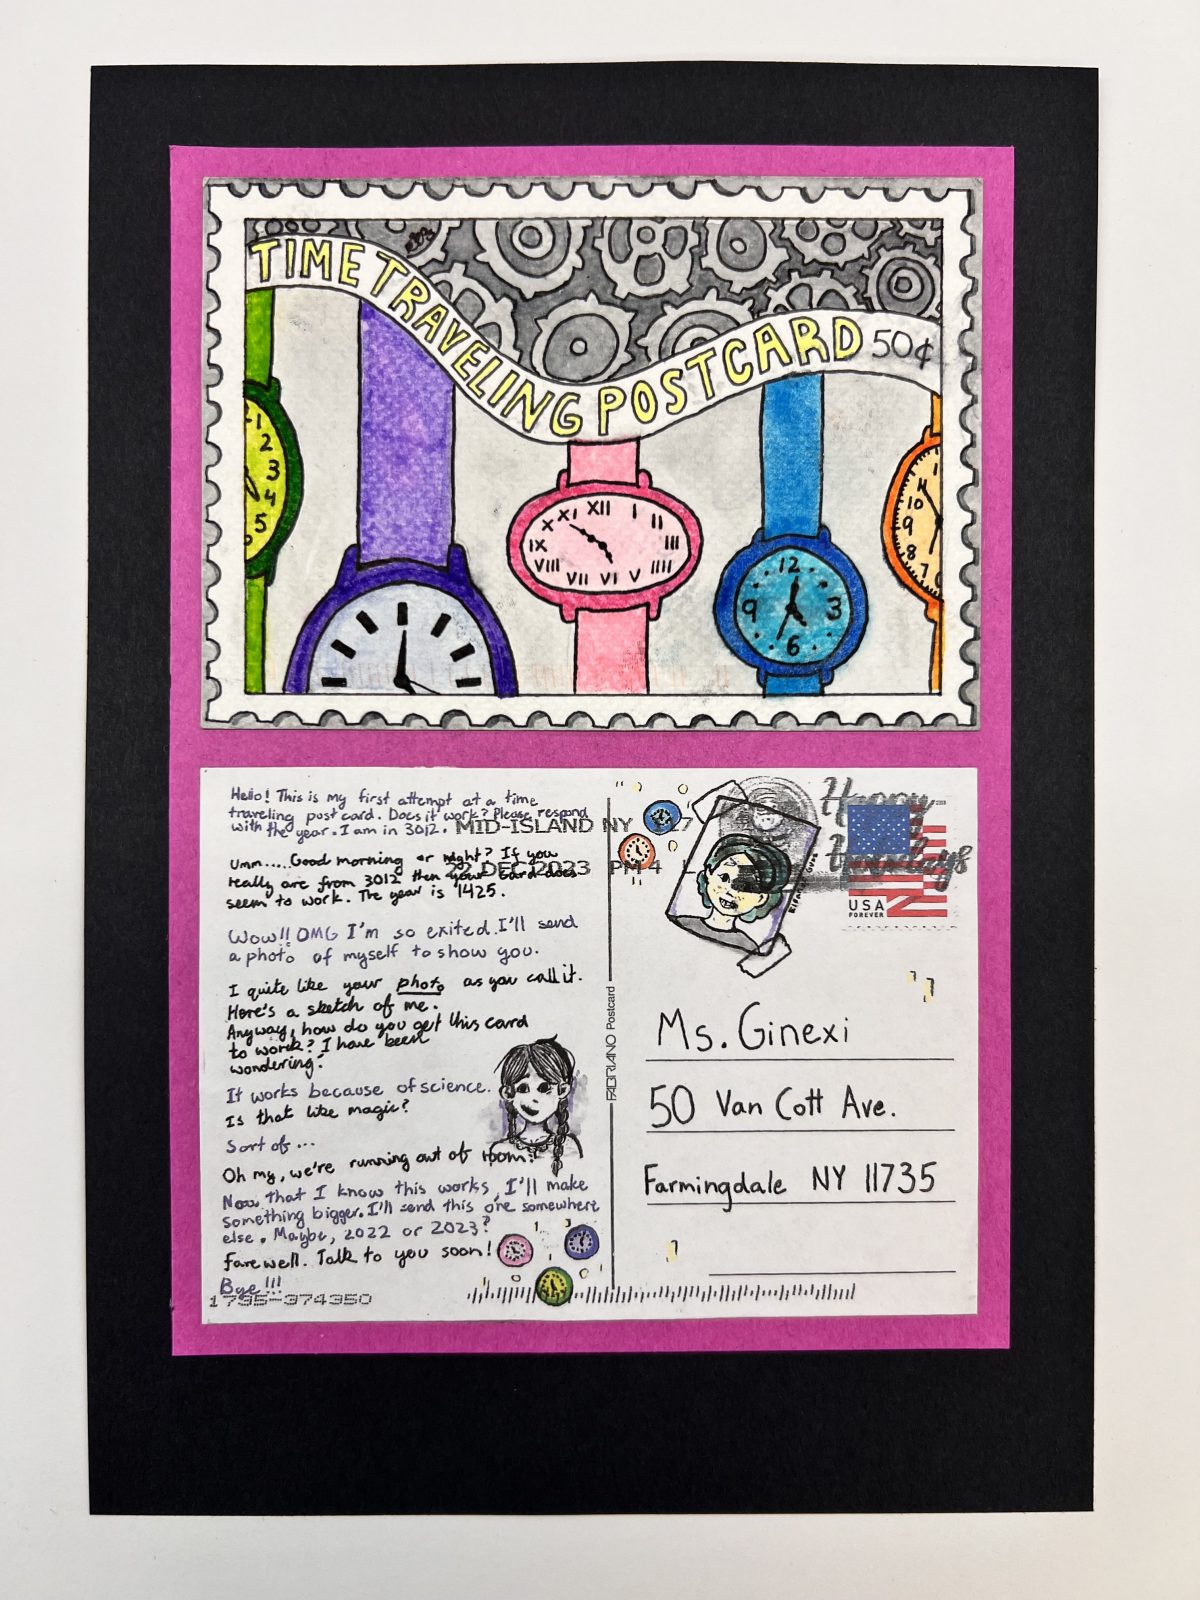 TIME TRAVELING POSTCARD 50¢
1
2
3
4
5
XII
I
II
III
IIII
V
VI
VII
VIII
IX
X
XI
12
3
6
9
10
9
8
7
Hello! This is my first attempt at a time
traveling post card. Does it work? Please respond
with the year. I am in 3012.
Umm.....Good morning or night? If you
really are from 3012 then your card does
seem to work. The year is 1425.
Wow!! OMG I'm so exited. I'll send
a photo of myself to show you.
I quite like your photo as you call it.
Here's a sketch of me.
Anyway, how do you get this card
to work? I have been
wondering.
It works because of science.
Is that like magic?
Sort of...
Oh my, we're running out of room!
Now that I know this works, I'll make
something bigger. I'll send this one somewhere
else. Maybe, 2022 or 2023?
farewell. Talk to you soon!
Bye!!!
1735-374350
MID-ISLAND NY 117
22 DEC 2023 PM 4 L
Happy
USA
FOREVER
FABRIANO Postcard
Ms. Ginexi
50 Van Cott Ave.
Farmingdale NY 11735